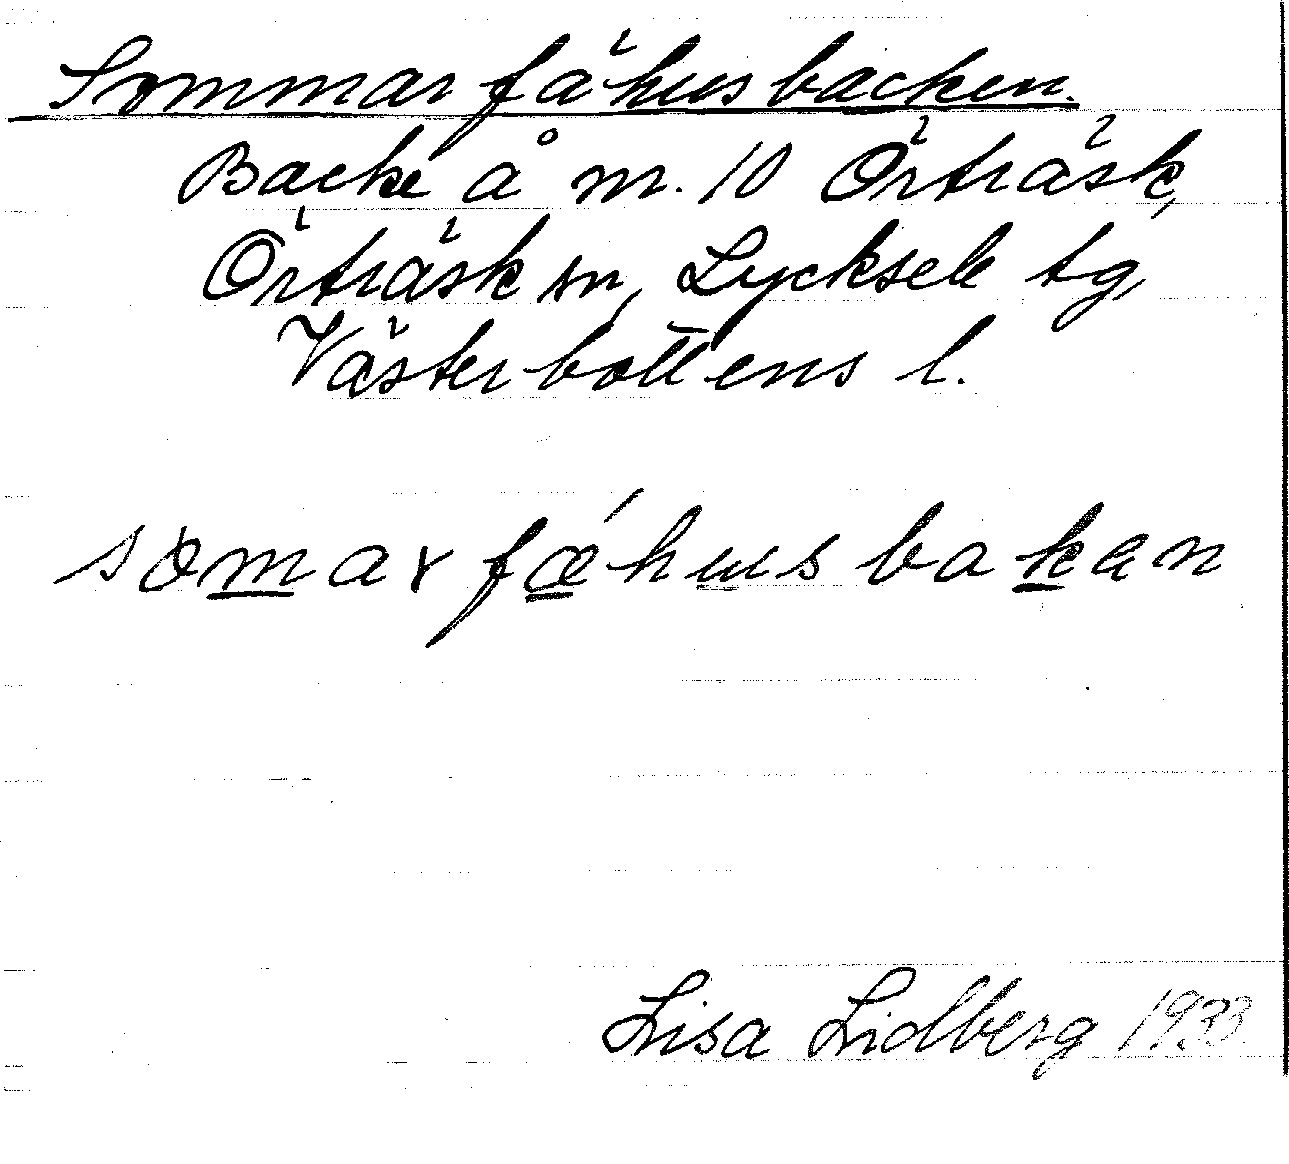 Sommarfähusbacken.
Backe å nr. 10 Örträsk,
Örträsk sn, Lycksele tg,
Västerbottens l.
somarfǽhusbakan
Lisa Lidberg 1933